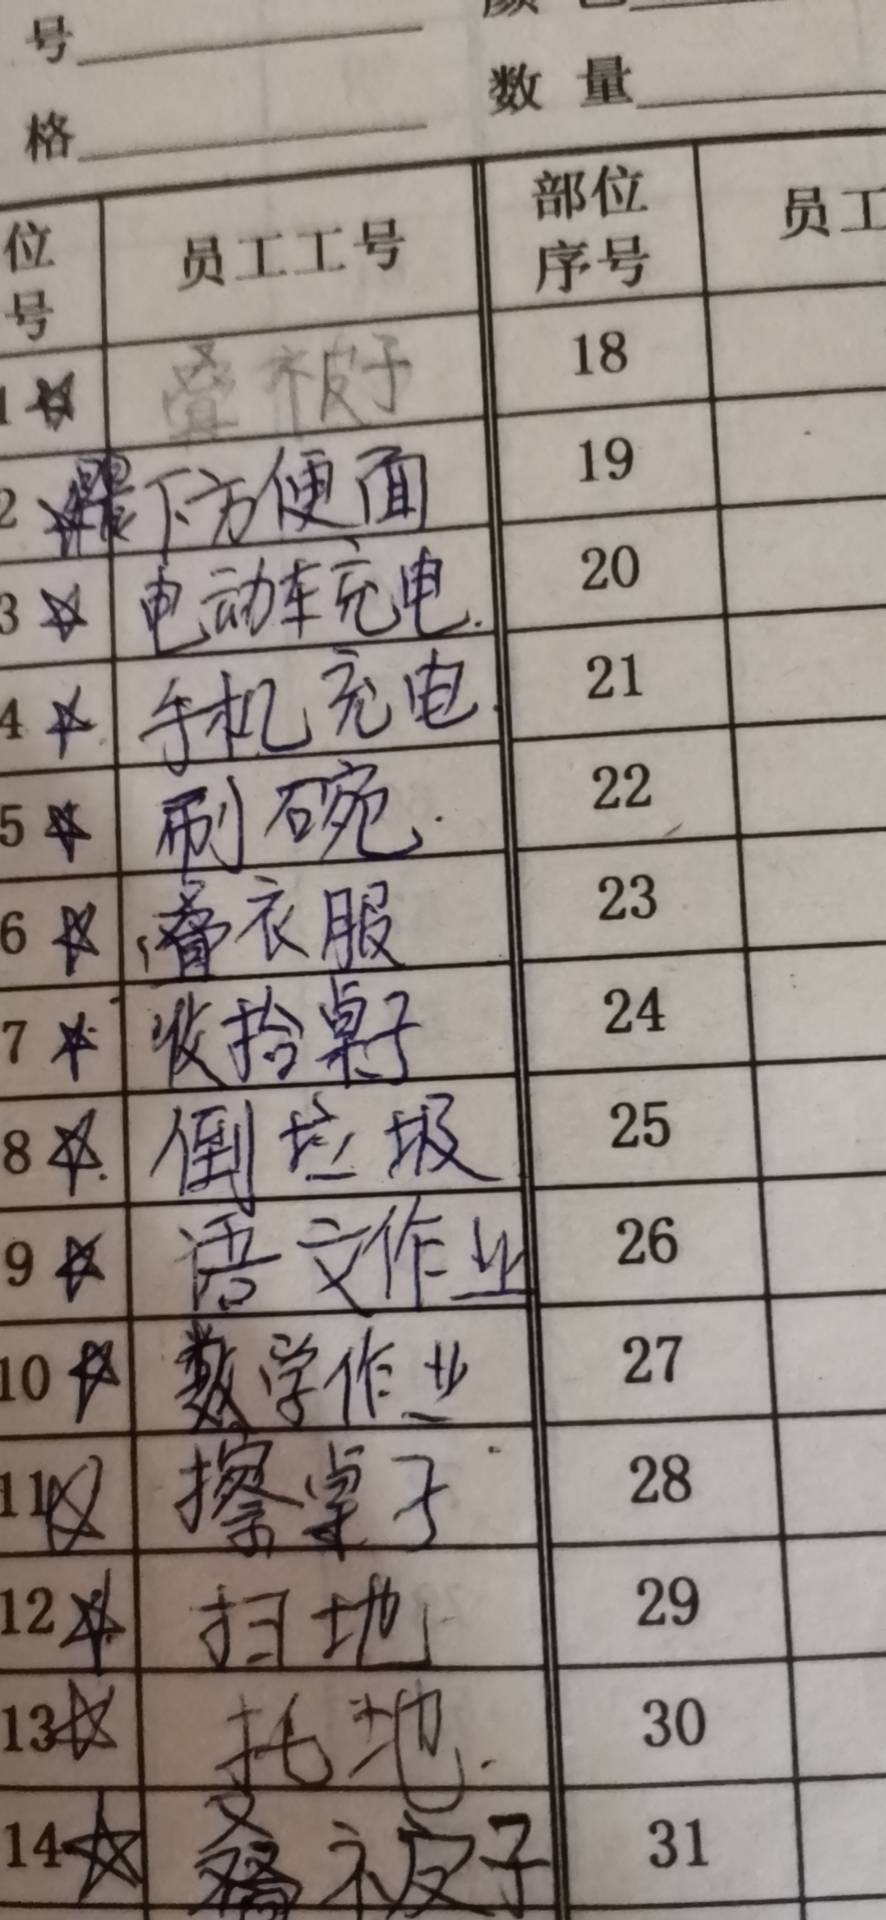 号 颜 色
格 数 量
位号 员工工号 部位序号 员工
1 ☆ 叠被子 18
2 ☆ 下方便面 19
3 ☆ 电动车充电. 20
4 ☆ 手机充电. 21
5 ☆ 刷碗. 22
6 ☆ 叠衣服 23
7 ☆ 收拾桌子 24
8 ☆ 倒垃圾 25
9 ☆ 语文作业 26
10 ☆ 数学作业 27
11 ☆ 擦桌子 28
12 ☆ 扫地 29
13 ☆ 托地. 30
14 ☆ 叠被子 31